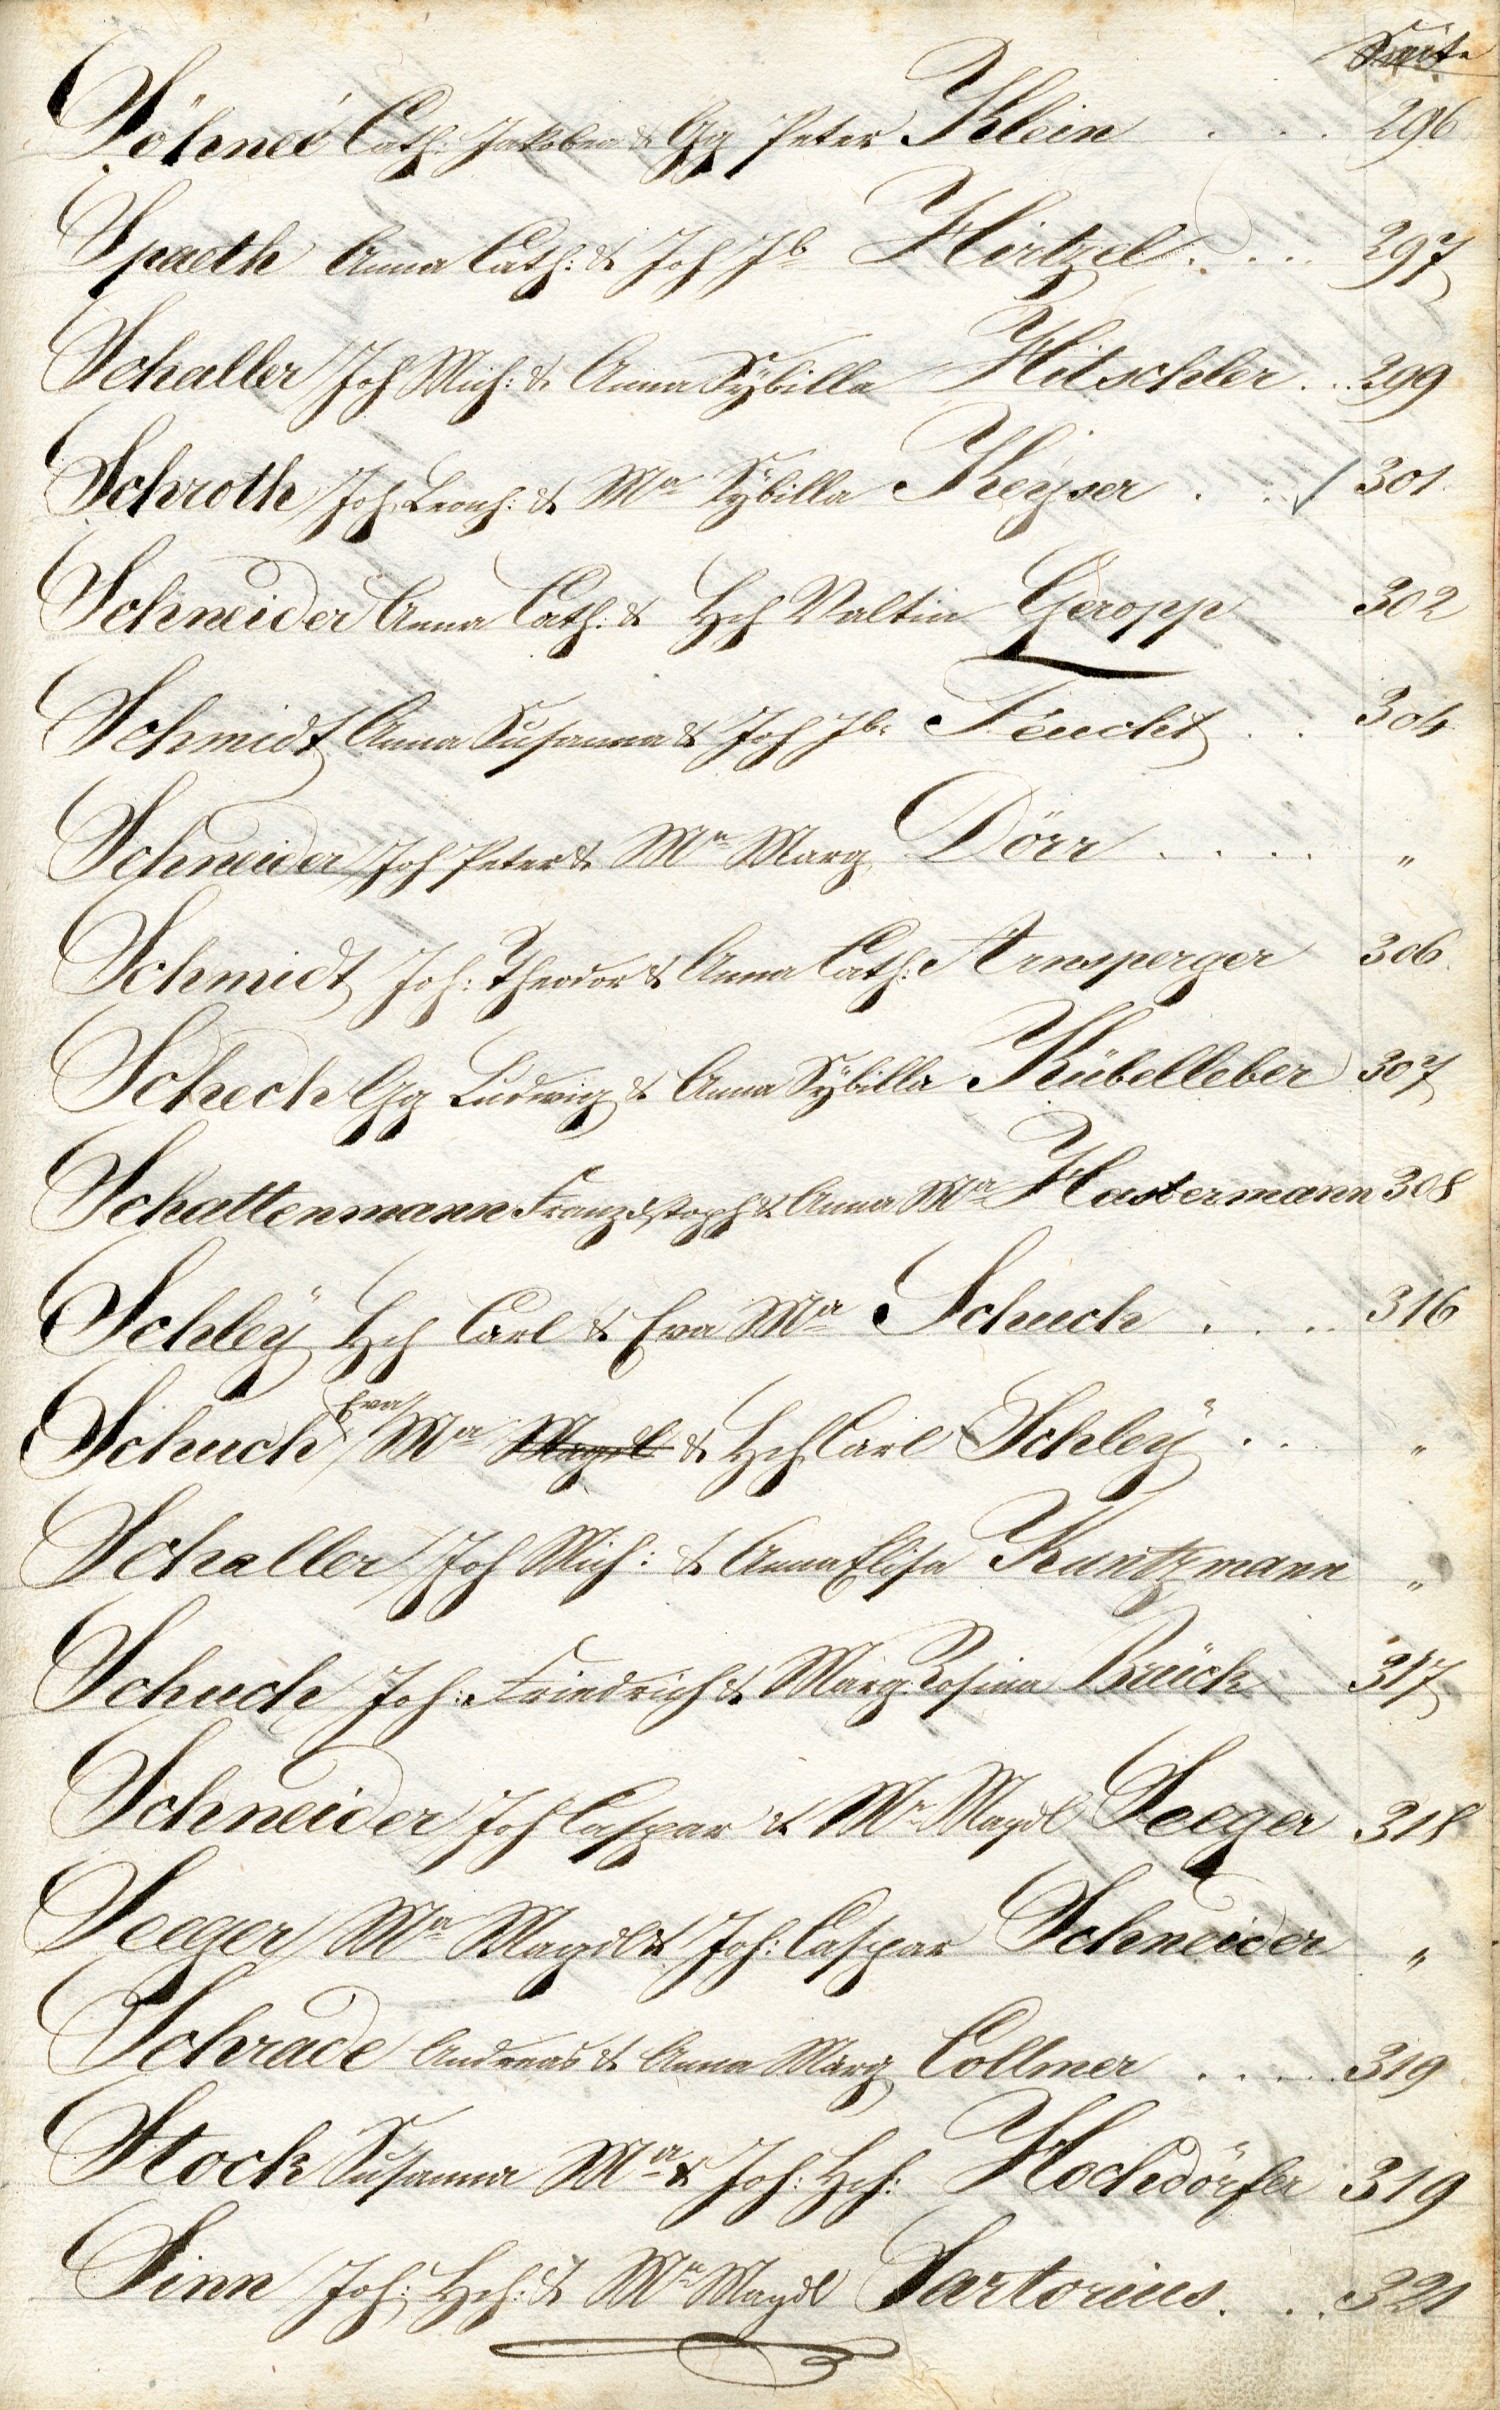 Seite
Söhneé Cath: Jakobea & Gg Peter Klein . . . . 296
Spaeth Anna Cath: & Joh Jb Hirtzel . . . . 297
Schaller Joh Mich: & Anna Sÿbilla Hitschler . . . 299
Schroth Joh Leonh: & Ma Sÿbilla Keÿser . . . ✓ 301
Schneider Anna Cath: & Hch Valtin Geropp 302
Schmidt Anna Susanna & Joh Jb. Feucht . . . 304
Schneider Joh Peter & Ma Marg Dörr . . . . . "
Schmidt Joh: Theodor & Anna Cath: Arnsperger 306
Schech Gg Ludwig & Anna Sÿbilla Kübelleber 307
Schattenmann & Anna Ma Hastermann 308
Schleÿ Hch Carl & Eva Ma Schuch . . . . 316
Schuch Eva Ma Magdl & Hch Carl Schleÿ . . "
Schaller Joh Mich: & Anna Elisa Kuntzmann "
Schuch Joh: Friedrich & Marg: Rosina Brück 317
Schneider Joh Caspar & Ma Magdl Seeger 318
Seeger Ma Magdl & Joh: Caspar Schneider "
Schrade Andreas & Anna Marg Collmer . . . . . 319
Stock Susanna Ma & Joh: Hch: Hochdörfer 319
Sinn Joh: Hch: & Ma Magdl Sartorius . . . 321